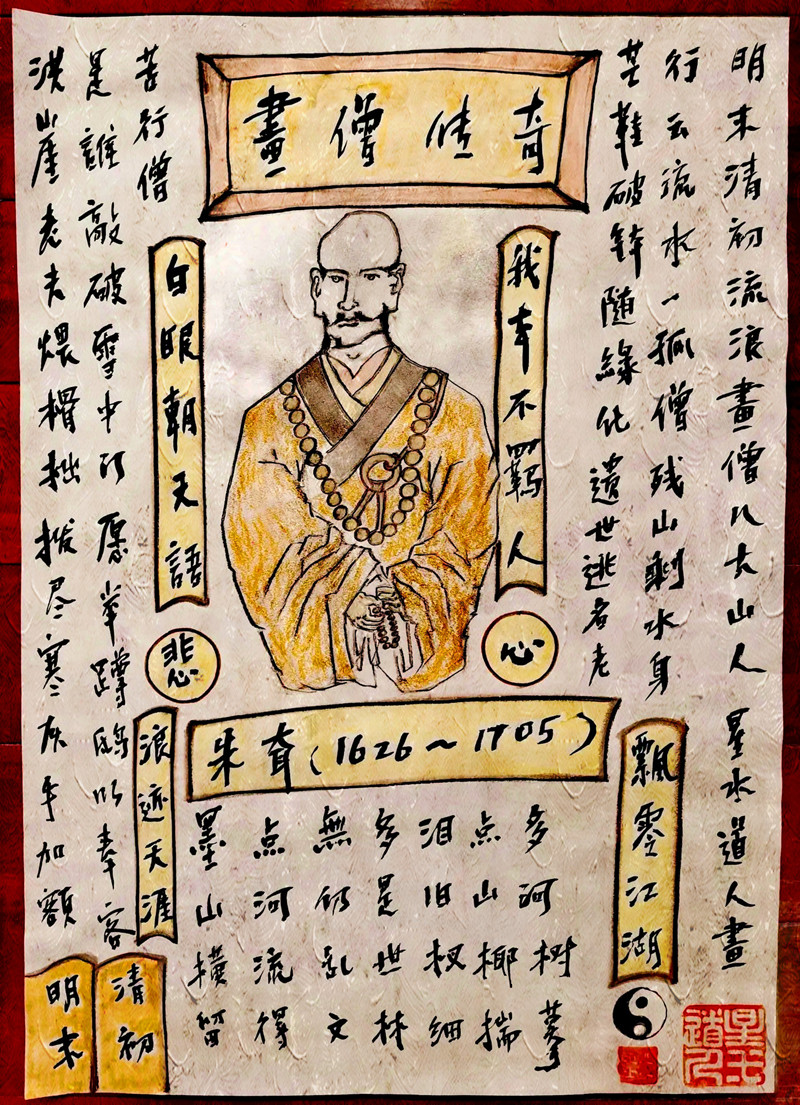 畫僧传奇
明末清初流浪畫僧八大山人 星水道人畫
行云流水一孤僧残山剩水身
芒鞋破鉢随緣化遺世逃名老
我本不羁人
白眼朝天語
苦行僧
是誰敲破雪中门愿举蹲鸱以奉客
洪崖老夫煨榾柮拨尽寒灰手加额
悲
心
朱耷(1626~1705)
飄零江湖
浪迹天涯
墨点無多泪点多
山河仍是旧山河
横流乱世杈椰树
留得文林细揣摹
明末
清初